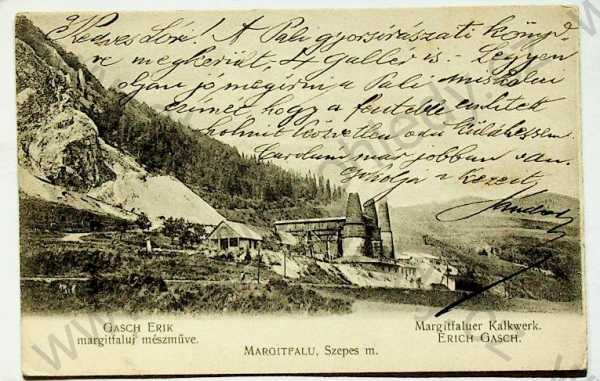 Kedves Lóri! A Pali gyorsírászati könyv-
re megkerült, 4 Gallér is. – Legyen
oljan jó megírni a Pali miskolci
címét hogy a fentebb említett
holmit közvetlen oda küldhessem
már jobban van.
Csókolja a kezeit
Sándor
GASCH ERIK
margitfalui mészműve.
MARGITFALU, Szepes m.
Margitfaluer Kalkwerk.
ERICH GASCH.